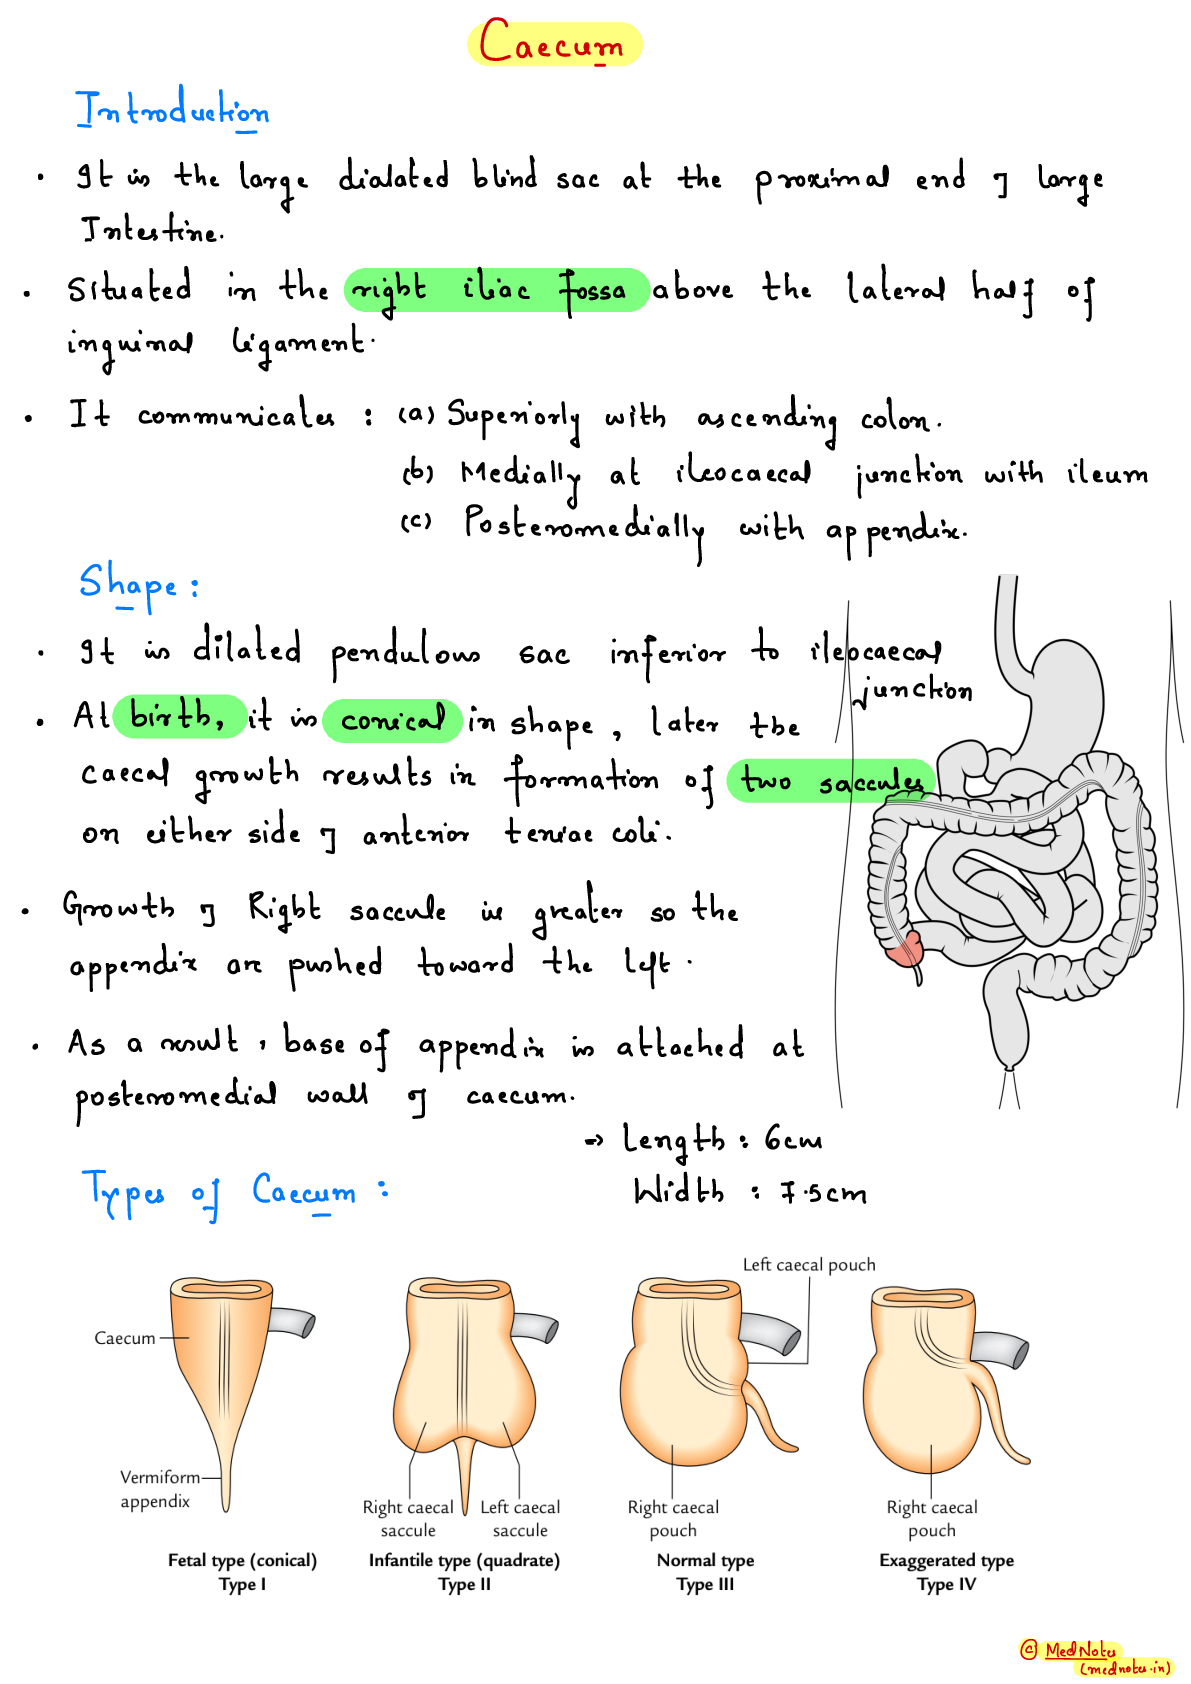 Caecum
Introduction
• It is the large dialated blind sac at the proximal end of large
Intestine.
• Situated in the right iliac fossa above the lateral half of
inguinal ligament.
• It communicates : (a) Superiorly with ascending colon.
(b) Medially at ileocaecal junction with ileum
(c) Posteromedially with appendix.
Shape :
• It is dilated pendulous sac inferior to ileocaecal
junction
• At birth, it is conical in shape, later the
caecal growth results in formation of two saccules
on either side of anterior teniae coli.
• Growth of Right saccule is greater so the
appendix are pushed toward the left.
• As a result, base of appendix is attached at
posteromedial wall of caecum.
→ Length : 6cm
Width : 7.5cm
Types of Caecum :
Left caecal pouch
Caecum
Vermiform
appendix
Right caecal
saccule
Left caecal
saccule
Right caecal
pouch
Right caecal
pouch
Fetal type (conical)
Type I
Infantile type (quadrate)
Type II
Normal type
Type III
Exaggerated type
Type IV
© MedNotes
(mednotes.in)